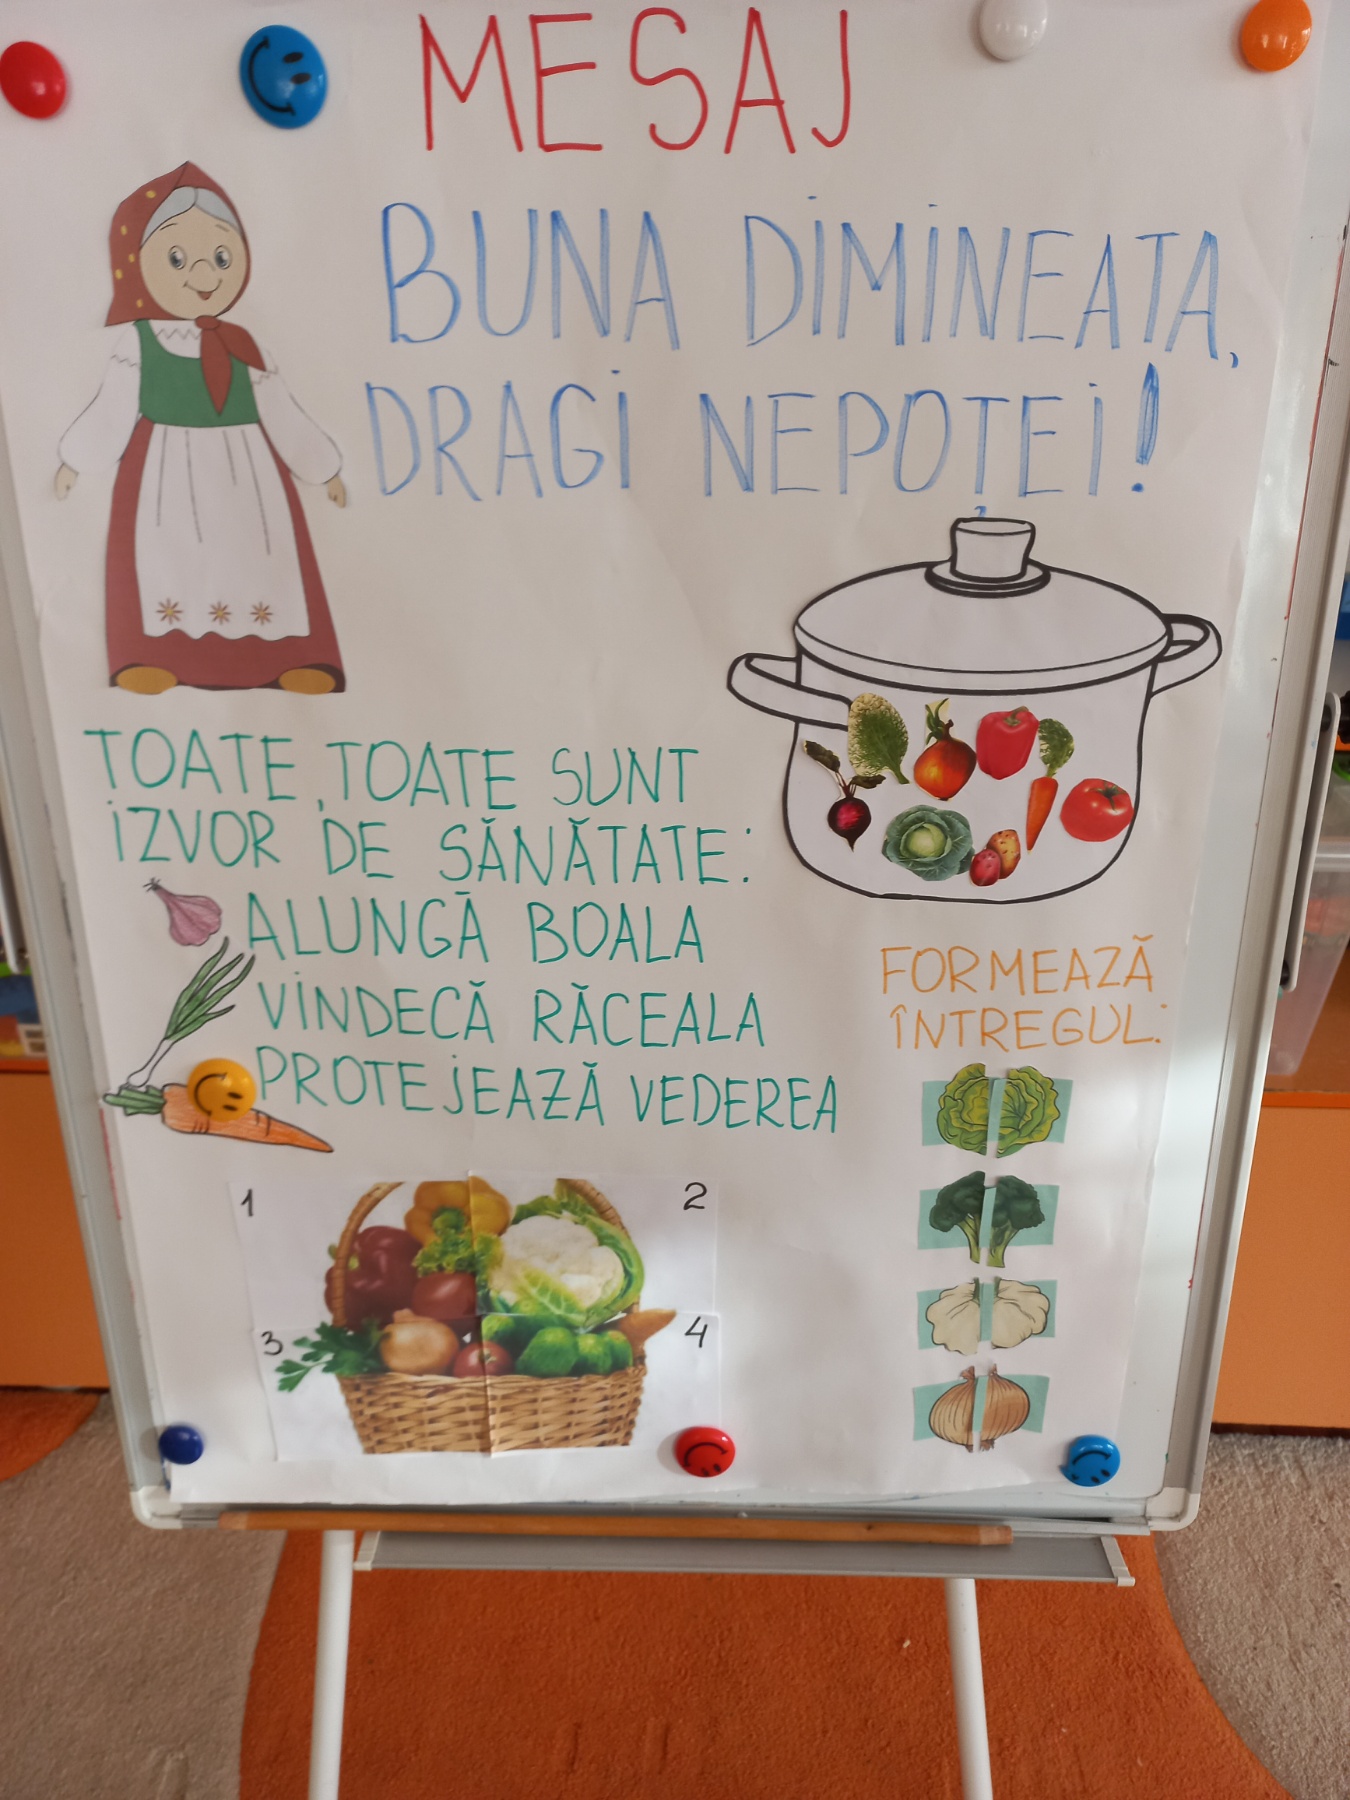 MESAJ
BUNA DIMINEATA,
DRAGI NEPOȚEI!
TOATE, TOATE SUNT
IZVOR DE SĂNĂTATE:
ALUNGĂ BOALA
VINDECĂ RĂCEALA
PROTEJEAZĂ VEDEREA
FORMEAZĂ
ÎNTREGUL:
1
2
3
4